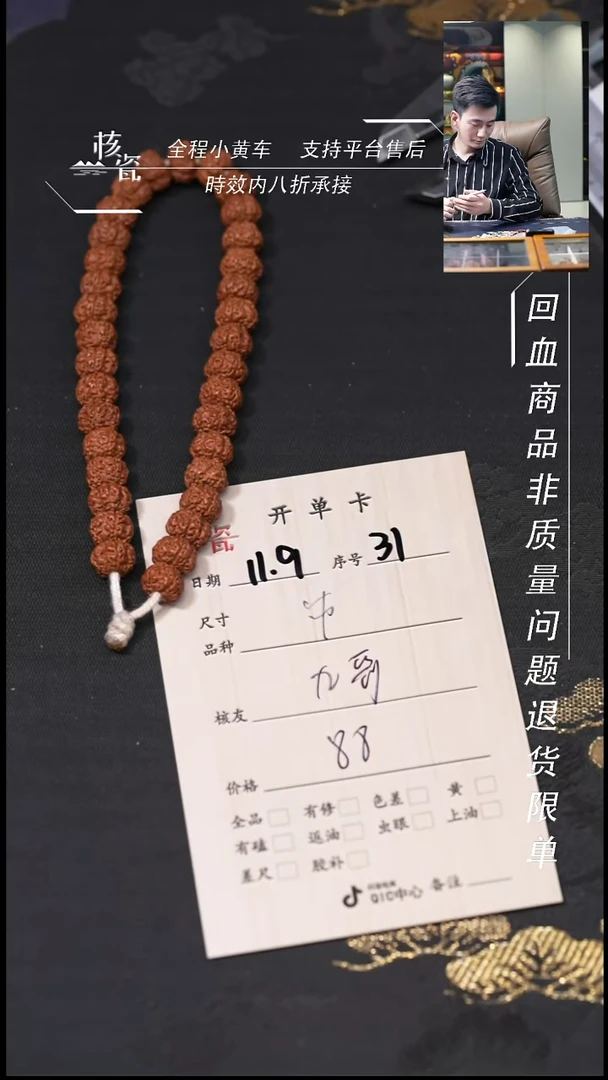 核瓷
全程小黄车 支持平台售后
時效内八折承接
回血商品非质量问题退货限单
开单卡
瓷
日期 11.9 序号 31
尺寸
品种
核友
88
价格
全品 有修 色差 黄
有磕 返油 虫眼 上油
差尺 胶补
QIC中心 备注